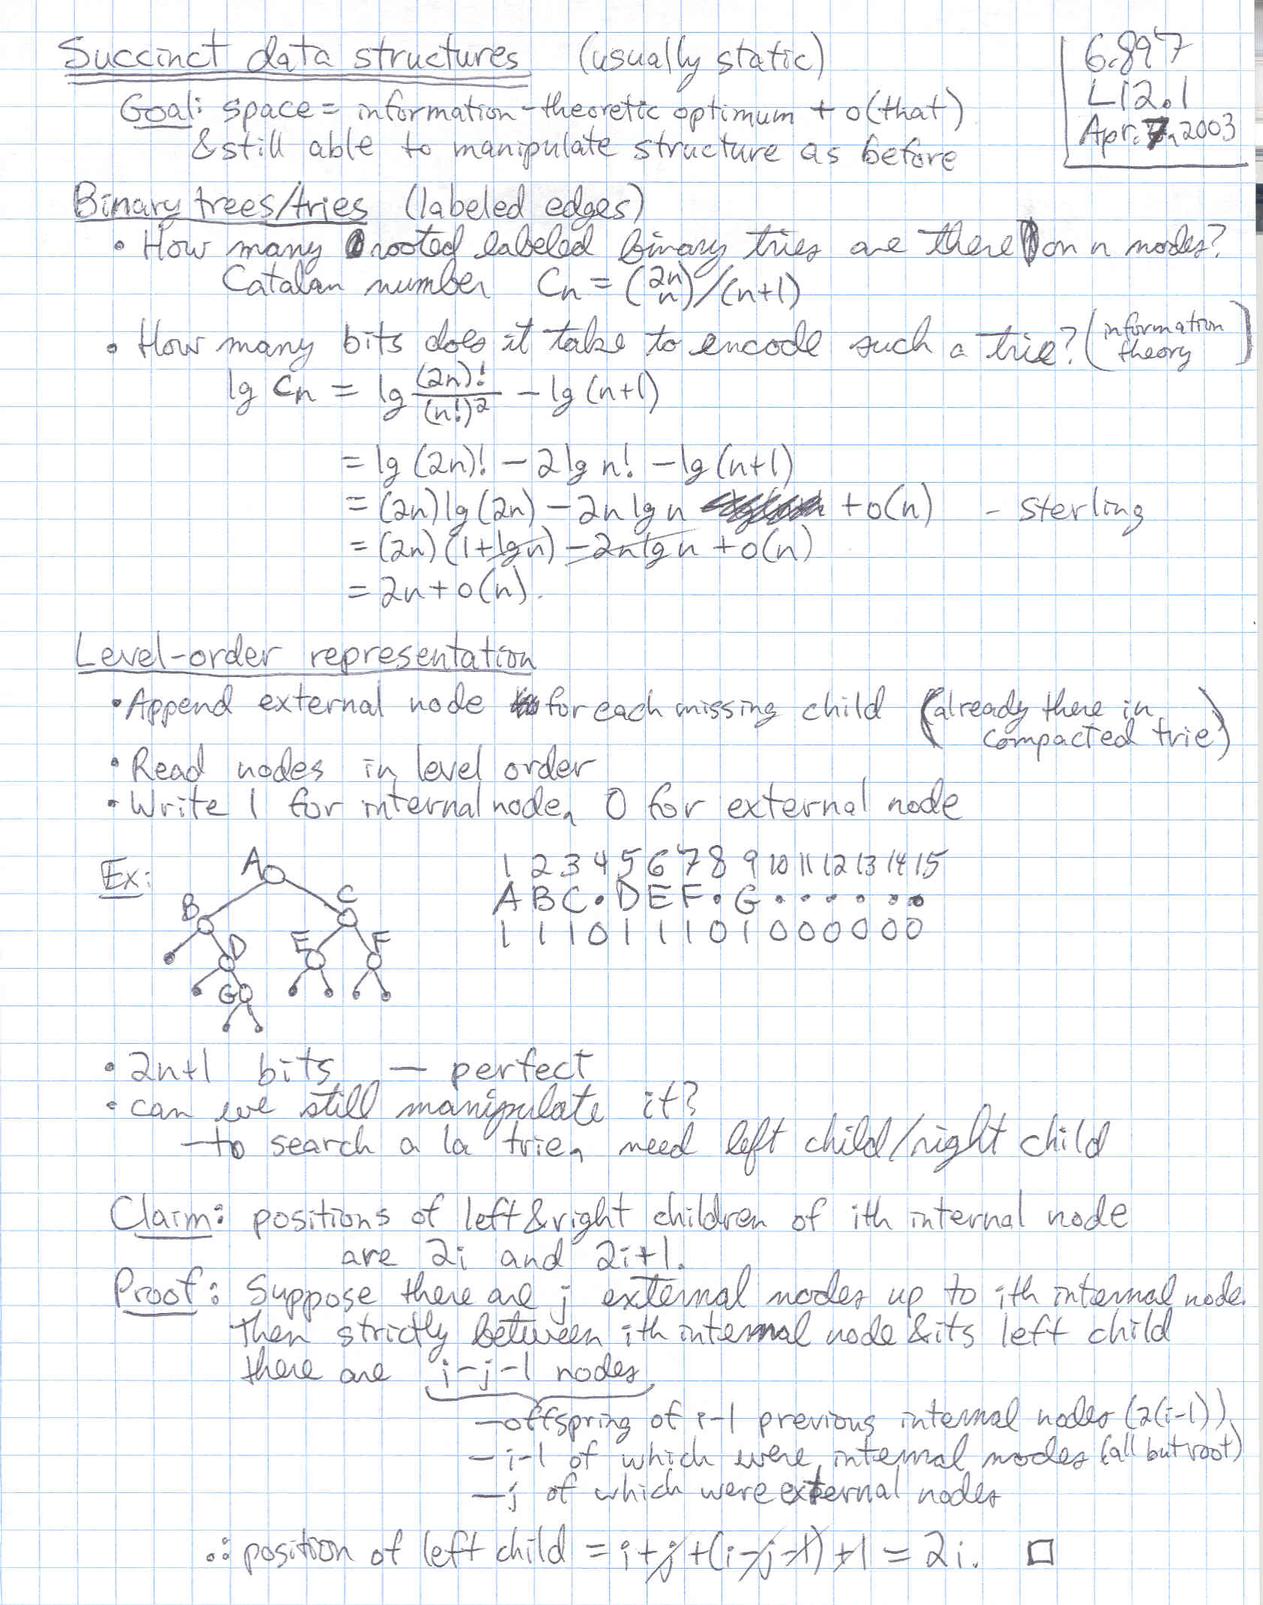 Succinct data structures (usually static)
6.897
L12.1
Apr. 7, 2003
Goal: space = information-theoretic optimum + o(that)
& still able to manipulate structure as before
Binary trees/tries (labeled edges)
• How many rooted labeled binary tries are there on n nodes?
Catalan number Cn = (2n n)/(n+1)
• How many bits does it take to encode such a trie? (information theory)
lg Cn = lg (2n)!/(n!)² - lg (n+1)
= lg (2n)! - 2 lg n! - lg (n+1)
= (2n) lg (2n) - 2n lg n + o(n) - Sterling
= (2n) (1 + lg n) - 2n lg n + o(n)
= 2n + o(n).
Level-order representation
• Append external node for each missing child (already there in compacted trie)
• Read nodes in level order
• Write 1 for internal node, 0 for external node
Ex:
A
B
C
D
E
F
G
1 2 3 4 5 6 7 8 9 10 11 12 13 14 15
A B C • D E F • G • • • • • •
1 1 1 0 1 1 1 0 1 0 0 0 0 0 0
• 2n+1 bits — perfect
• can we still manipulate it?
— to search a la trie, need left child/right child
Claim: positions of left & right children of ith internal node
are 2i and 2i+1.
Proof: Suppose there are j external nodes up to ith internal node.
Then strictly between ith internal node & its left child
there are i-j-1 nodes
— offspring of i-1 previous internal nodes (2(i-1))
— i-1 of which were internal nodes (all but root)
— j of which were external nodes
∴ position of left child = i + j + (i-j-1) + 1 = 2i. □